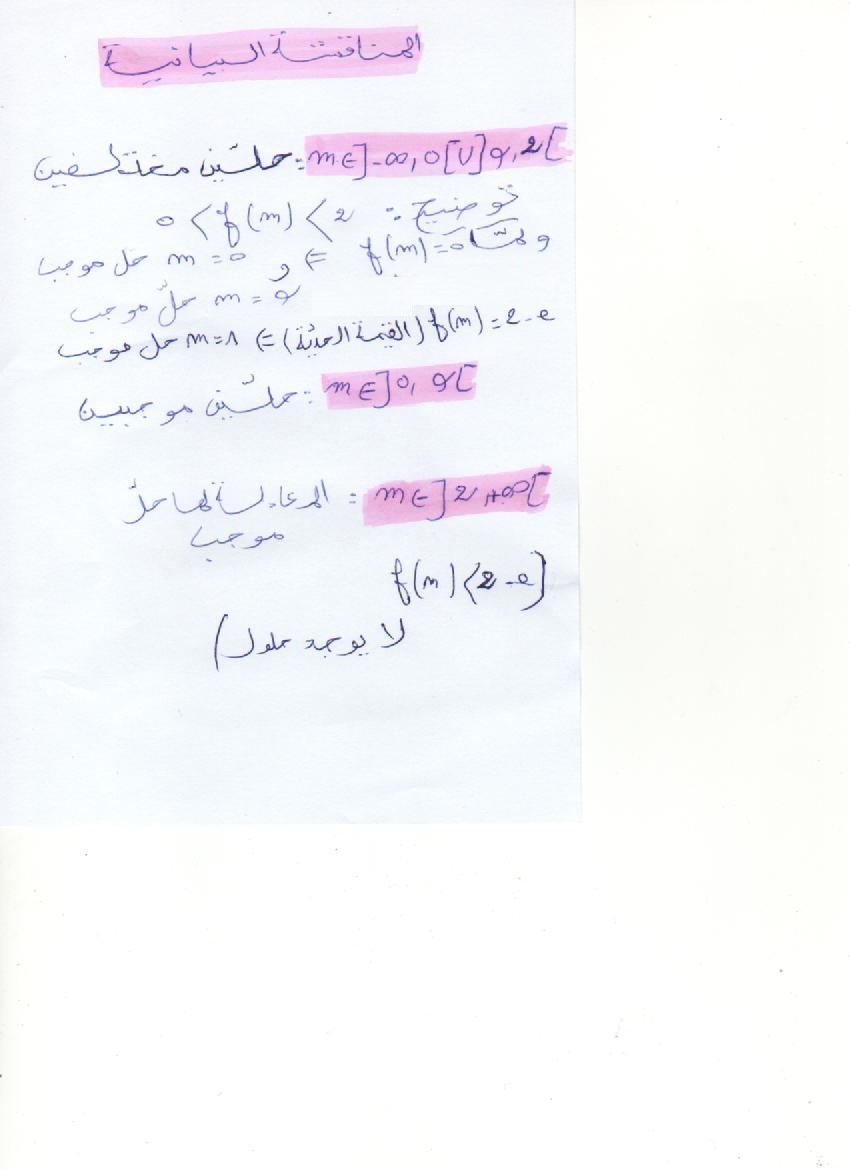 المناقشة البيانية
m∈]-∞,0[U]α,2[ : حلين مختلفين
توضيح: 0 < f(m) < 2
f(m)=0 ⇒ m = 0 حل موجب و
m = α حل موجب
f(m)=2-e (القيمة الحدية) ⇒ m=1 حل موجب
m∈]0,α[ : حلين موجبين
m∈]2,+∞[ : المعادلة لها حل
موجب
f(m)<2-e)
لا يوجد حلول)